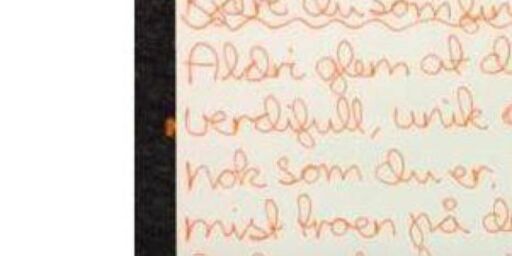 Kjære du som
Aldri glem at
verdifull, unik
nok som du er.
mist troen på